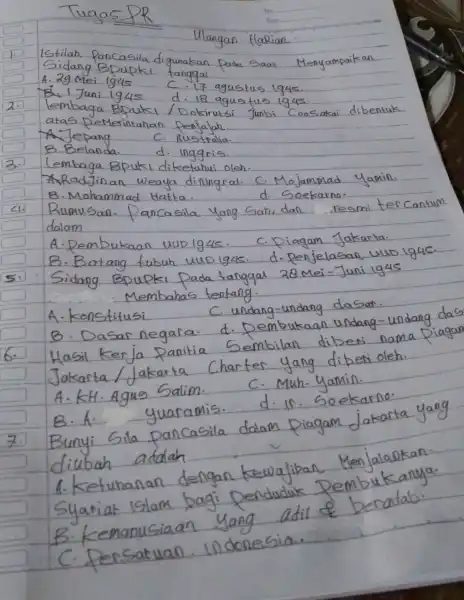 Tugas PR
Ulangan Harian
1. Istilah Pancasila digunakan Pada Saat Menyampaikan
Sidang Bpupki tanggal
A. 29 Mei 1945 C. 17 agustus 1945.
B. 1 Juni 1945 d. 18 agustus 1945.
2. lembaga Bpupki / Dokuritsu Junbi Coosakai dibentuk
atas pemerintahan penjajah.
A. Jepang C. Australia.
B. Belanda. d. inggris.
3. Lembaga BPUKI diketahui oleh.
A. Radjiman weaya diningrat. C. Mojammad yamin.
B. Mohammad Hatta. d. Soekarno.
4. Rumusan Pancasila yang Sah dan resmi tercantum
dalam
A. Pembukaan UUD 1945. C. piagam Jakarta.
B. Batang tubuh UUD 1945. d. Penjelasan UUD 1945.
5. Sidang Bpupki Pada tanggal 28 Mei - Juni 1945
Membahas tentang.
A. konstitusi C. undang-undang dasar.
B. Dasar negara. d. Pembukaan undang-undang das
6. Hasil kerja Panitia Sembilan diberi nama Piagam
Jakarta / Jakarta Charter yang diberi oleh.
A. KH. Agus Salim. C. Muh. yamin.
B. A. yuaramis. d. Ir. Soekarno.
7 Bunyi Sila Pancasila dalam Piagam jakarta yang
diubah adalah
A. keturanan dengan kewajiban Menjalankan.
Syariat Islam bagi Penduduk Pembukanya.
B. kemanusiaan yang adil & beradab.
C. Persatuan indonesia.